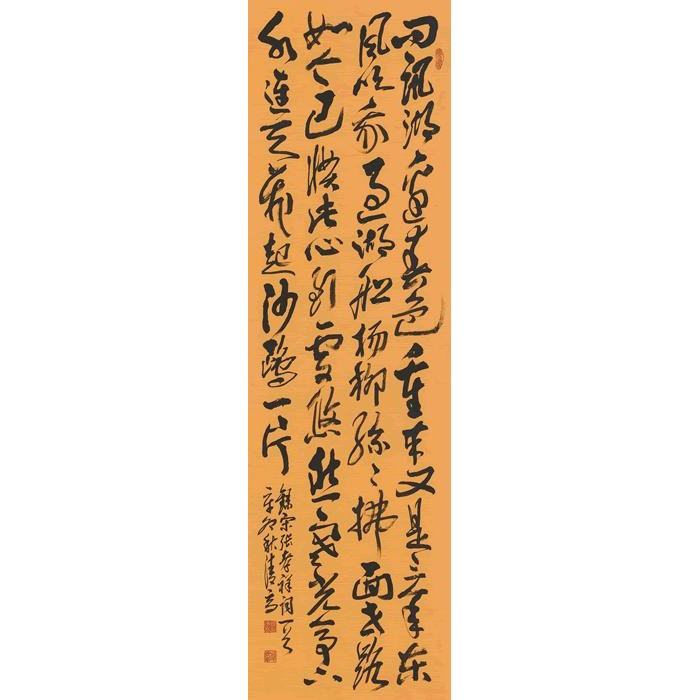 問訊湖邊春色重來又是三年東
風吹我過湖船楊柳絲〻拂面世路
如今已慣此心到處悠然寒光亭下
水連天飛起沙鷗一片
錄宋張孝祥詞一首
秋清